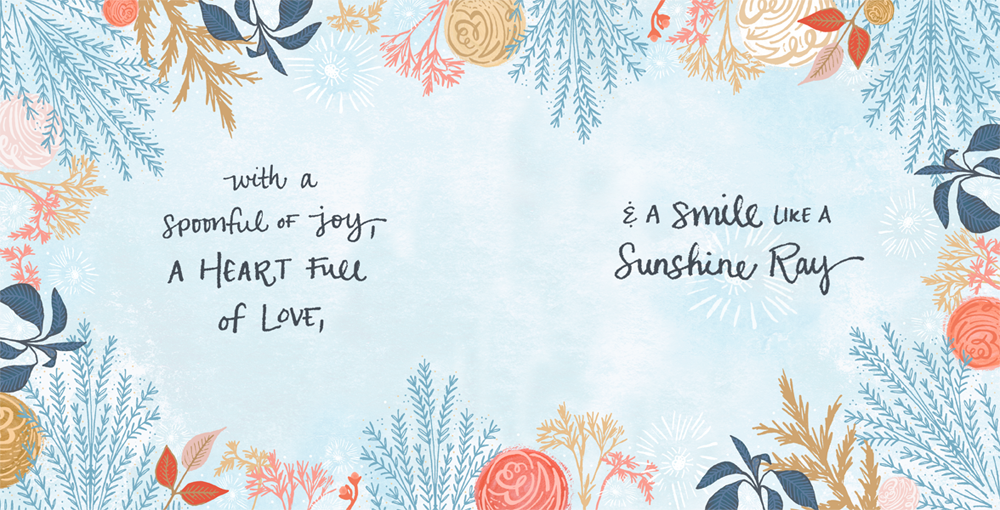 with a
spoonful of joy,
A HEART Full
of Love,
& A smile LIKE A
Sunshine Ray